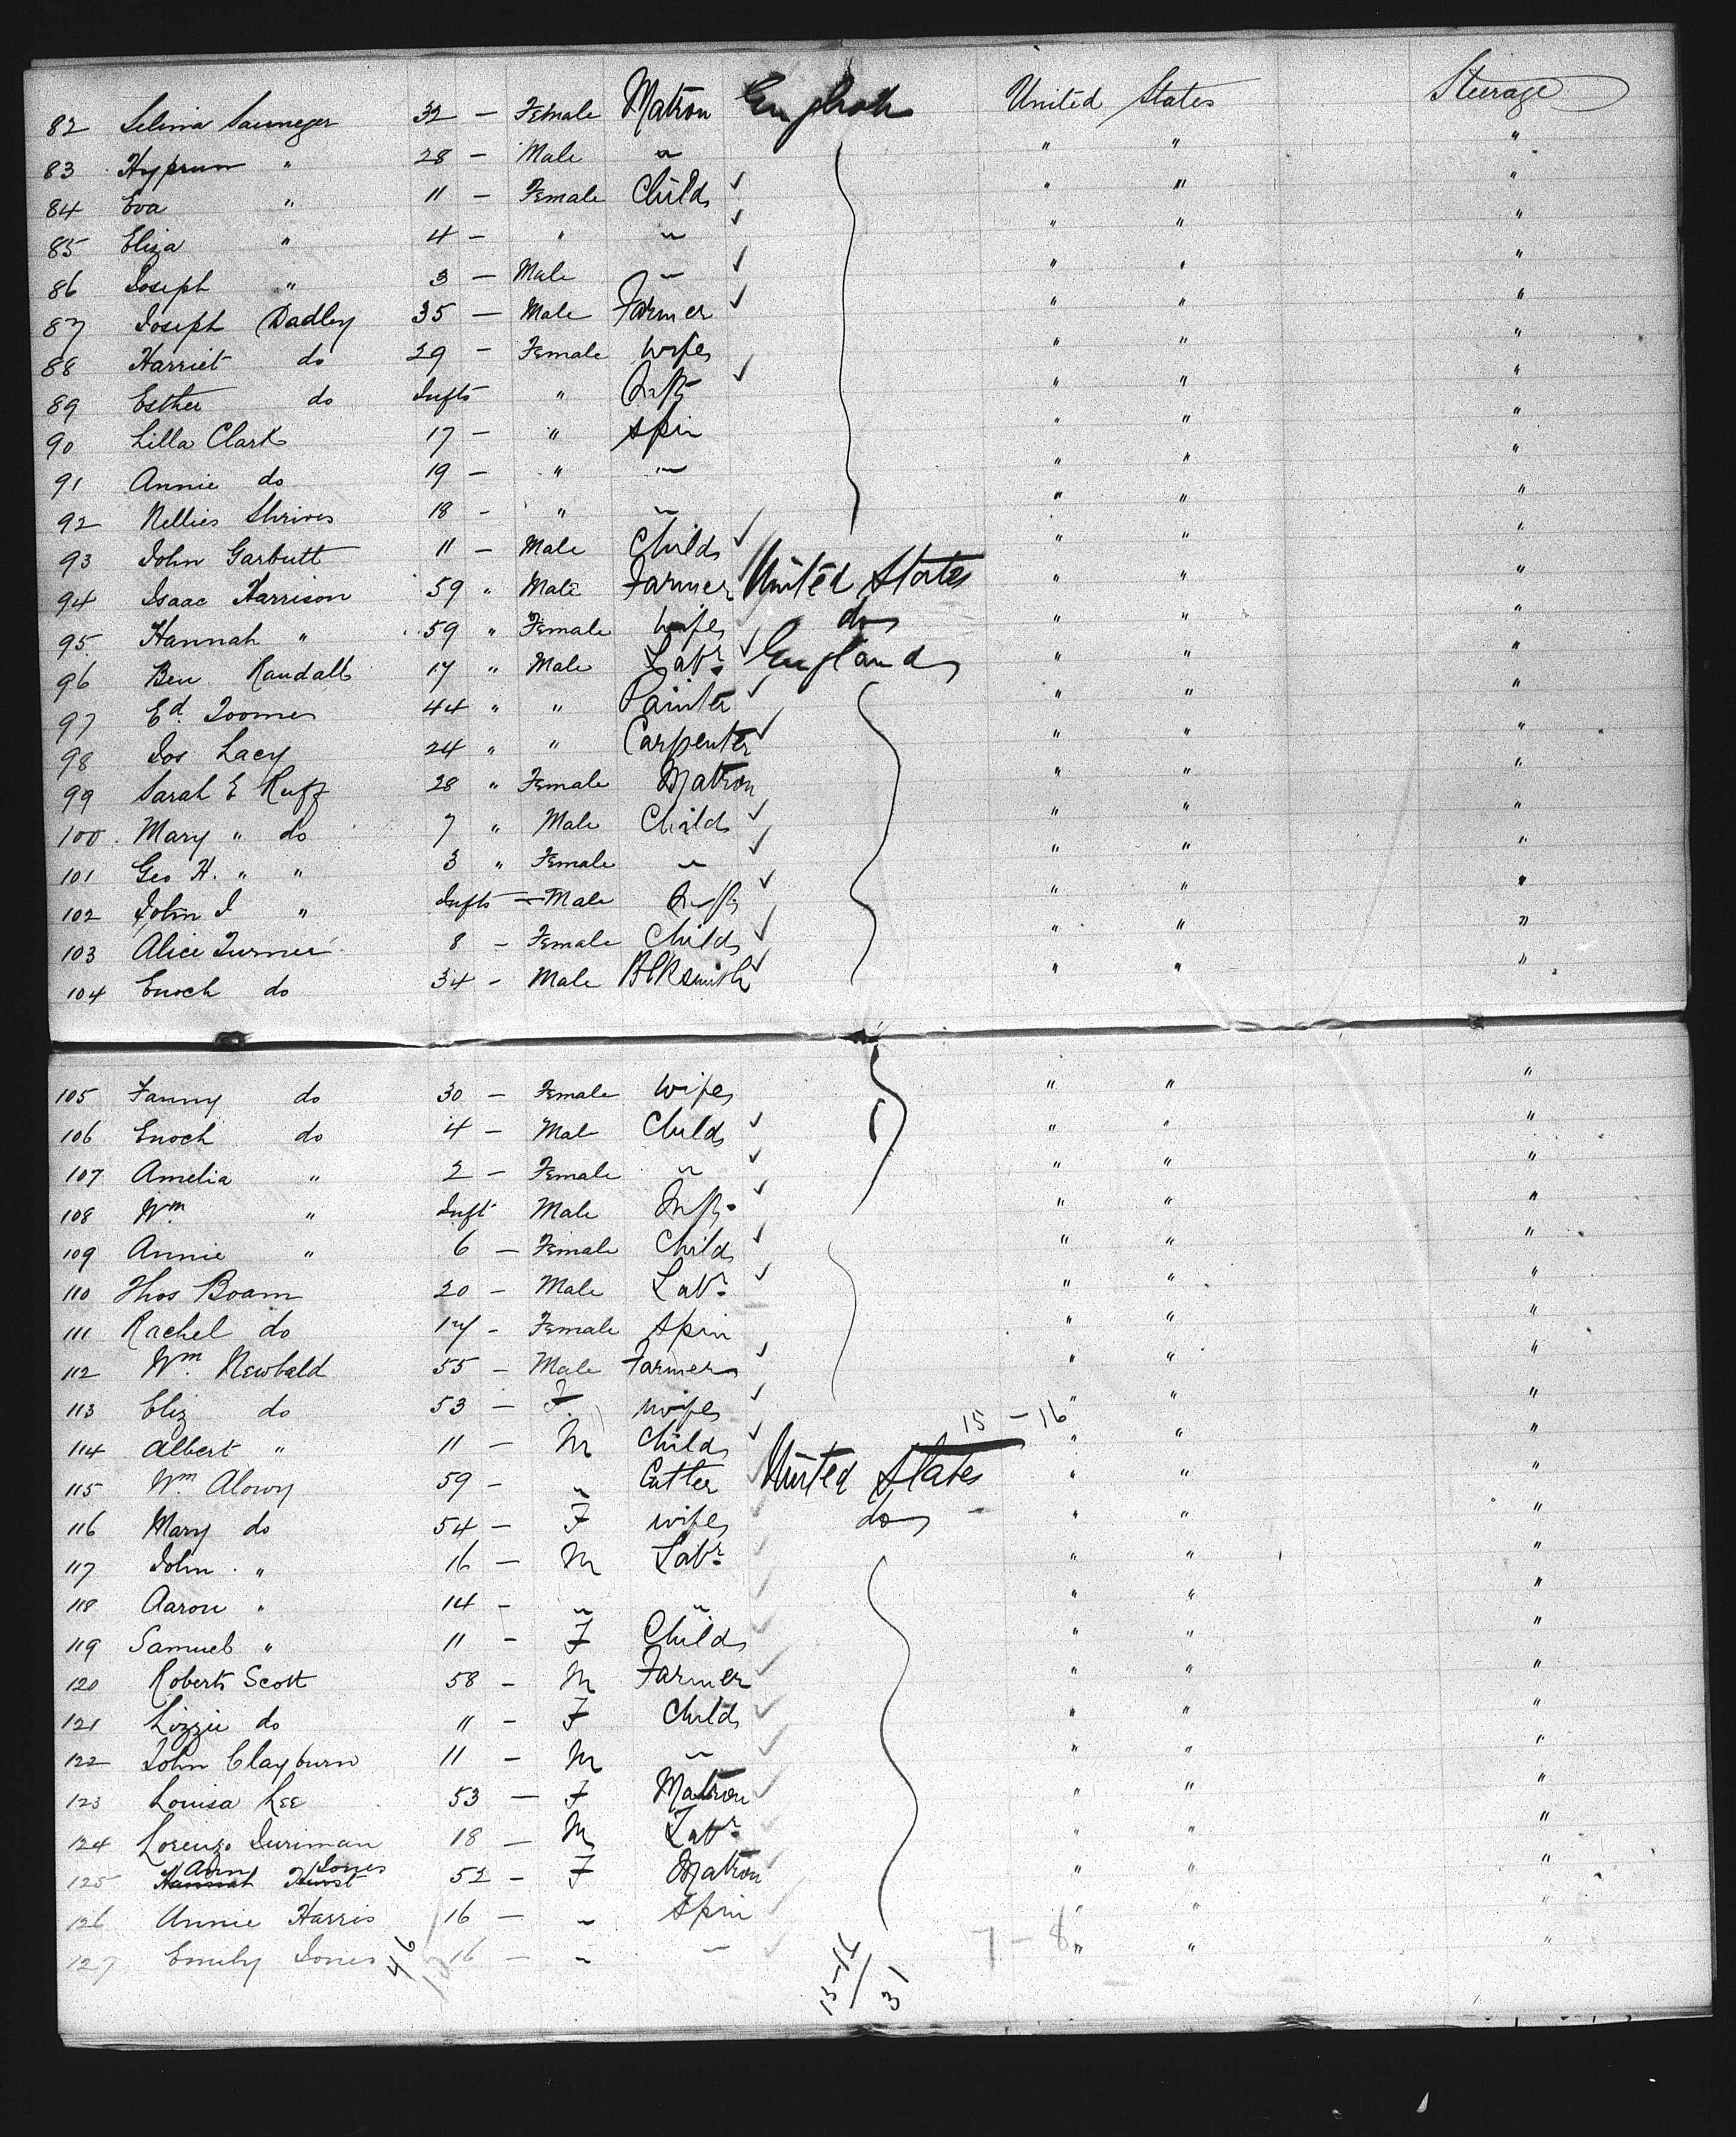 82 Selina Sauneger 32 — Female Matron English United States Steerage
83 Hyprum " 28 — Male " " " "
84 Eva " 11 — Female Child ✓ " " "
85 Eliza " 4 — " " ✓ " " "
86 Joseph " 3 — Male " ✓ " " "
87 Joseph Dadley 35 — Male Farmer ✓ " " "
88 Harriet do 29 — Female Wife " " "
89 Esther do Infts " Inft ✓ " " "
90 Lilla Clark 17 — " Spin " " "
91 Annie do 19 — " " " " "
92 Nellies Shrives 18 - " " " " "
93 John Garbutt 11 — Male Child ✓ " " "
94 Isaac Harrison 59 " Male Farmer United States " " "
95 Hannah " 59 " Female Wife do " " "
96 Ben Randall 17 " Male Labr ✓ England " " "
97 Ed. Toomes 44 " " Painter ✓ " " "
98 Jos Lacy 24 " " Carpenter ✓ " " "
99 Sarah E Ruff 28 " Female Matron " " "
100 Mary " do 7 " Male Child ✓ " " "
101 Geo H. " " 3 " Female " ✓ " " "
102 John J " Infts — Male Inft ✓ " " "
103 Alice Turner 8 - Female Child ✓ " " "
104 Enoch do 34 - Male Blksmith ✓ " " "
105 Fanny do 30 — Female Wife " " "
106 Enoch do 4 — Mal Child ✓ " " "
107 Amelia " 2 — Female " ✓ " " "
108 Wm " Inft Male Inft. ✓ " " "
109 Annie " 6 — Female Child ✓ " " "
110 Thos Boam 20 — Male Labr ✓ " " "
111 Rachel do 17 - Female Spin " " "
112 Wm. Newbald 55 — Male Farmer ✓ " " "
113 Eliz do 53 — F. wife ✓ " " "
15 — 16
114 Albert " 11 — M Child ✓ " " "
115 Wm Alowy 59 - " Cutler ✓ United States " " "
116 Mary do 54 — F wife ✓ do " " "
117 John " 16 — M Labr ✓ " " "
118 Aaron " 14 - " " ✓ " " "
119 Samuel " 11 - F Child ✓ " " "
120 Robert Scott 58 - M Farmer ✓ " " "
121 Lizzie do " - F Child ✓ " " "
122 John Clayburn 11 — M " ✓ " " "
123 Louisa Lee 53 — F Matron ✓ " " "
124 Lorenzo Duriman 18 — M Labr ✓ " " "
Ann Jones
125 Hannah Hurst 52 - F Matron ✓ " " "
126 Annie Harris 16 — " Spin ✓ " " "
127 Emily Jones 16 — " " ✓ 7 - 8 " " "
46
31